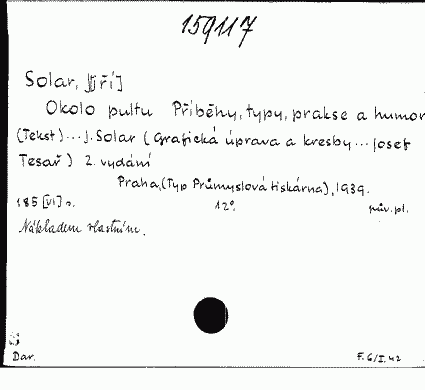 159117
Solar, J[iří]
Okolo pultu Příběhy, typy, prakse a humor
(Tekst)...J. Solar (Grafická úprava a kresby...Josef
Tesař) 2. vydání
Praha, (Typ Průmyslová tiskárna), 1939.
185 [VI] s. 12°. pův. pl.
Nákladem vlastním.
Dar. F.6/I.42